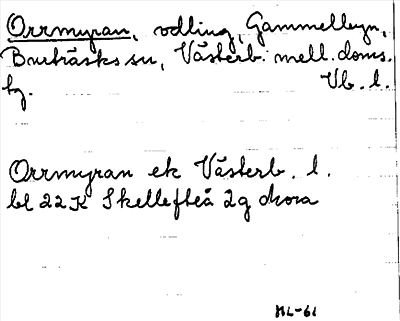 Orrmyran, odling, Gammelbyn,
Burträsks sn, Västerb. mell. doms.
hg. Vb. l.
Orrmyran ek Västerb. l.
bl 22 K Skellefteå 2g
ML-61